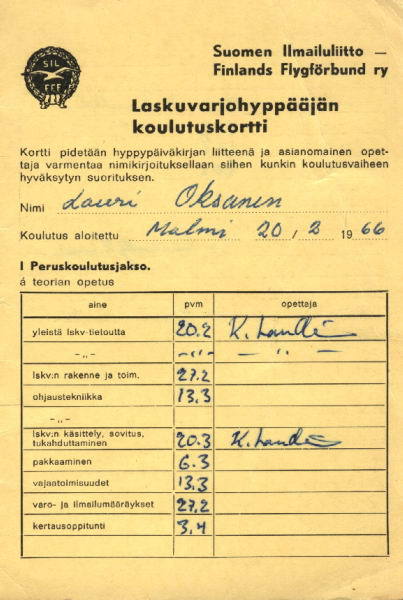 SIL
FFF
Suomen Ilmailuliitto —
Finlands Flygförbund ry
Laskuvarjohyppääjän
koulutuskortti
Kortti pidetään hyppypäiväkirjan liitteenä ja asianomainen opet-
taja varmentaa nimikirjoituksellaan siihen kunkin koulutusvaiheen
hyväksytyn suorituksen.
Nimi Lauri Oksanen
Koulutus aloitettu Malmi 20/2 1966
I Peruskoulutusjakso.
á teorian opetus
aine pvm opettaja
yleistä lskv-tietoutta 20.2 K.
-„- -„- - „ -
lskv:n rakenne ja toim. 27.2
ohjaustekniikka 13.3
-„-
lskv:n käsittely, sovitus,
tukahduttaminen 20.3 K.
pakkaaminen 6.3
vajaatoimisuudet 13.3
varo- ja ilmailumääräykset 27.2
kertausoppitunti 3.4